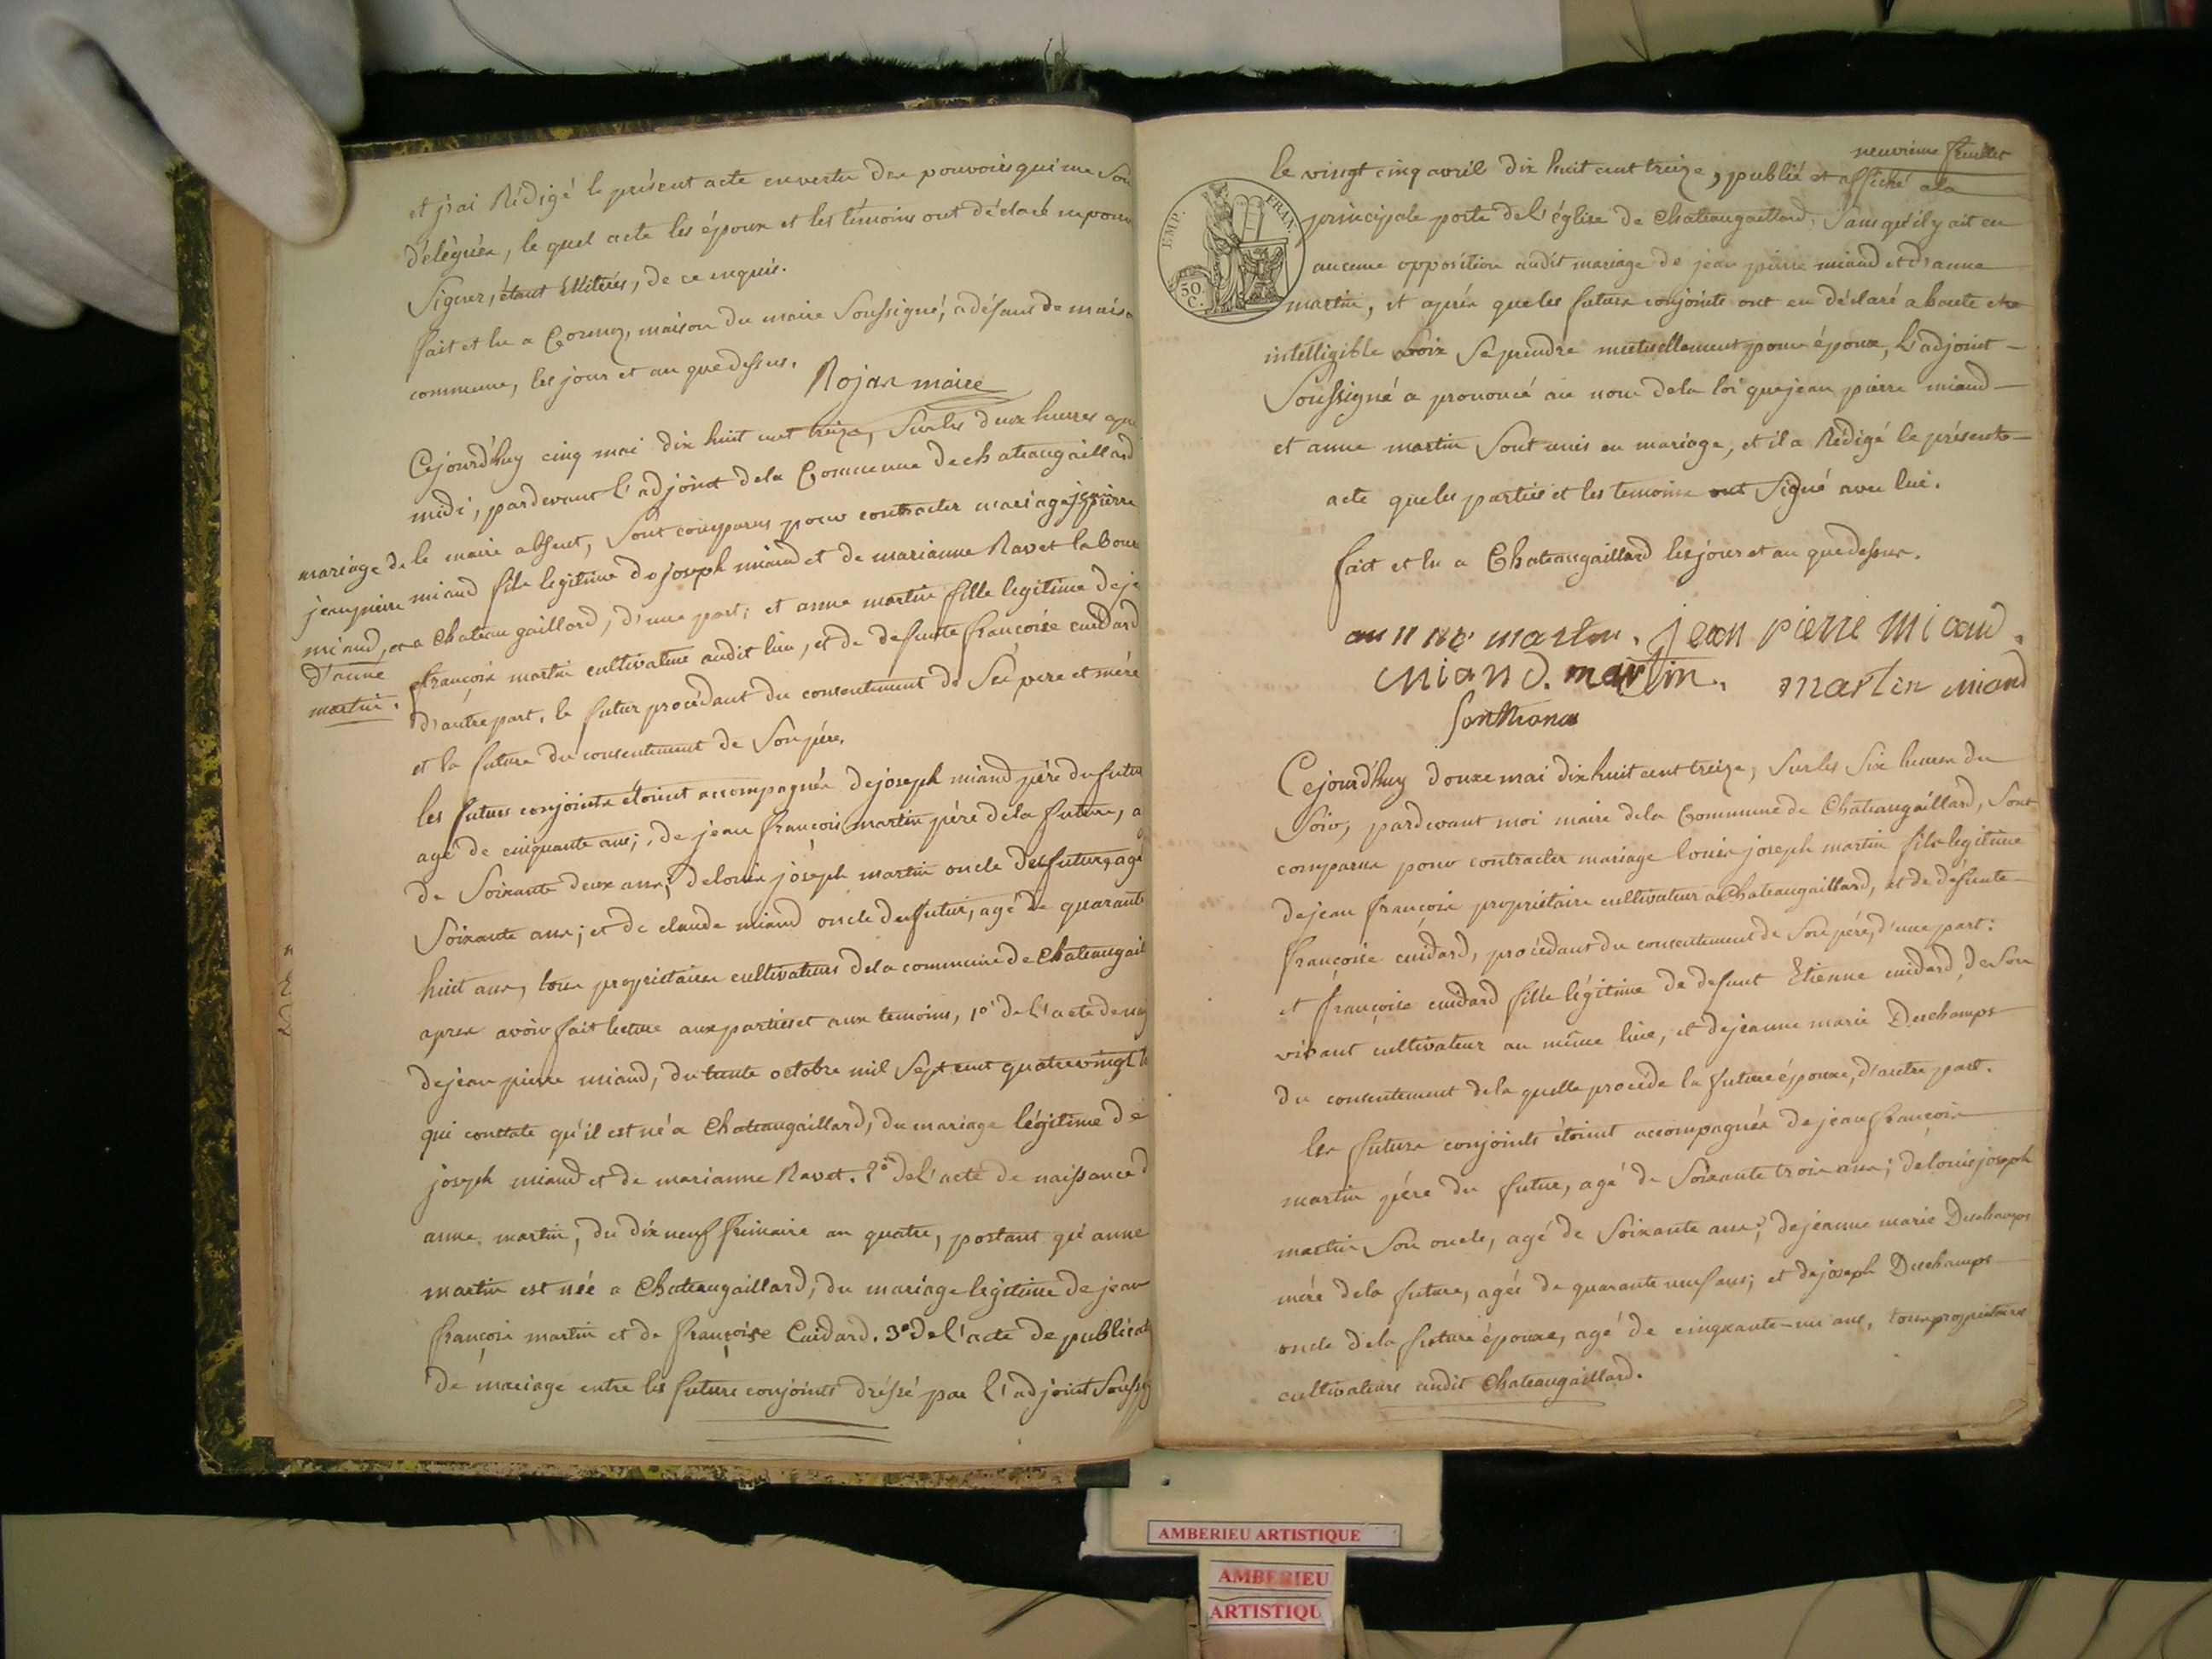 et j'ai Rédigé le présent acte en vertu des pouvoirs qui me Son
délégués, le quel acte les époux et les témoins ont déclaré ne pouvo
Signer, étant illitérés, de ce enquis.
fait et lu a Cormoz, maison du maire Soussigné, a défaut de maiso
commune, les jour et an que dessus.
Rojas maire
Cejourd'huy cinq mai dix huit cent treize, Sur les deux heures apr
midi, pardevant l'adjoint de la Commune de chateaugaillard
le maire absent, Sont comparus pour contracter mariage jean pierre
miand fils legitime de joseph miand et de marianne Ravet labour
a Chateaugaillard, d'une part; et anne martin fille legitime de je
françois martin cultivateur audit lieu, et de defunte françoise cuidard
d'autre part, le futur procédant du consentement de Ses pere et mère
et la future du consentement de Son père.
mariage de
jean pierre
miand, et
d'anne
martin.
les futurs conjoints étoient accompagnés de joseph miand père du futur
agé de cinquante ans; de jean françois martin père de la future, a
de Soixante deux ans; de louis joseph martin oncle de la future, agé
Soixante ans; et de claude miand oncle du futur, agé de quarante
huit ans, tous propriétaires cultivateurs de la commune de Chateaugail
apres avoir fait lecture aux parties et aux temoins, 1º de l'acte de nai
de jean pierre miand, du trente octobre mil Sept cent quatrevingt
qui constate qu'il est né a Chateaugaillard, du mariage légitime de
joseph miand et de marianne Ravet. 2º de l'acte de naissance d
anne martin, du dix neuf frimaire an quatre, portant qu'anne
martin est née a Chateaugaillard, du mariage legitime de jean
françois martin et de françoise Cuidard. 3º de l'acte de publicat
de mariage entre les futurs conjoints dréssé par l'adjoint Soussig
neuvième feuillet
le vingt cinq avril dix huit cent treize, publié et affiché a la
principale porte de l'église de Chateaugaillard, Sans qu'il y ait eu
aucune opposition audit mariage de jean pierre miand et d'anne
martin, et après que les futurs conjoints ont eu déclaré a haute et
intelligible voix Se prendre mutuellement pour époux, L'adjoint
Soussigné a prononcé au nom de la loi que jean pierre miand
et anne martin Sont unis en mariage, et il a Rédigé le présent
acte que les parties et les temoins ont Signé avec lui.
EMP. FRAN.
50 C.
fait et lu a Chateaugaillard les jour et an que dessus.
anne martin. jean pierre miand.
miand. martin. martin miand
Cejourd'huy douze mai dix huit cent treize, Sur les Six heures du
Soir, pardevant moi maire de la Commune de Chateaugaillard, Sont
comparus pour contracter mariage louis joseph martin fils legitime
de jean françois propriétaire cultivateur a Chateaugaillard, et de défunte
françoise cuidard, procédant du consentement de Son père, d'une part:
et françoise cuidard fille légitime de defunt Etienne cuidard, de Son
vivant cultivateur au même lieu, et de jeanne marie Deschamps
du consentement de la quelle procède la future épouse, d'autre part.
les futurs conjoints étoient accompagnés de jean françois
martin père du futur, agé de Soixante trois ans; de louis joseph
martin Son oncle, agé de Soixante ans; de jeanne marie Deschamps
mère de la future, agée de quarante neuf ans; et de joseph Deschamps
oncle de la future épouse, agé de cinquante-un ans, tous propriétaires
cultivateurs audit Chateaugaillard.
AMBERIEU ARTISTIQUE
AMBERIEU
ARTISTIQU